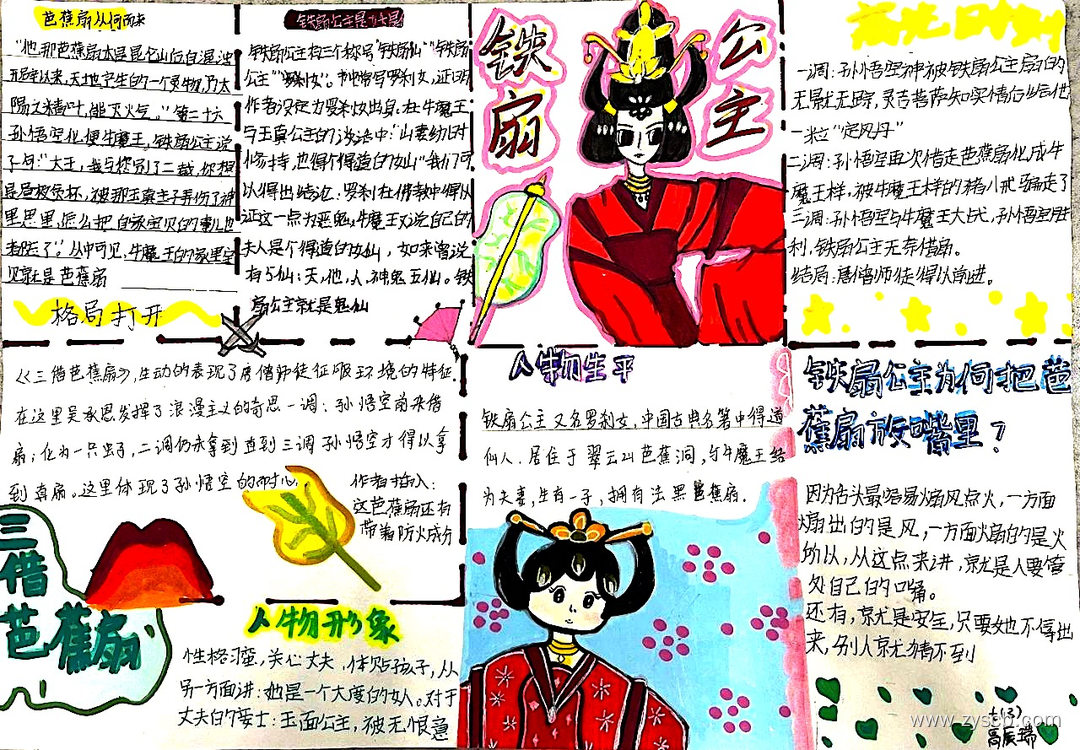 芭蕉扇从何而来
"他那芭蕉扇本是昆仑山后自混沌
开辟以来,天地产生的一个灵物,乃太
阴之精叶,能灭火气。"第二十六
孙悟空化便牛魔王,铁扇公主说
了句:"大王,我与您别了二载,你想
是昼夜贪杯,被那玉真主子弄伤了神
思,怎么把自家宝贝的事儿也
都忘了"。从中可见,牛魔王的家里宝
贝就是芭蕉扇
格局打开
铁扇公主是
铁扇公主有三个称号"铁扇仙""铁扇
公主""罗刹女"。书中常写罗刹女,证明
作者设定为罗刹女出身,在牛魔王
与玉真公主的谈话中:"山妻幼
修持,也得个得道的女仙"我们可
以得出结论,罗刹在佛教中得以
证这一点为恶鬼,牛魔王又说自己的
夫人是个得道的女仙,如来曾说
有5仙:天,地,人,神鬼五仙。铁
扇公主就是鬼仙
铁扇
公主
一调:孙悟空神被铁扇公主扇的
无影无踪,灵吉菩萨知实情后给他
一粒"定风丹"
二调:孙悟空再次借走芭蕉扇化成牛
魔王样,被牛魔王样的猪八戒骗走了
三调:孙悟空与牛魔王大战,孙悟空胜
利,铁扇公主无奈借扇。
结局:唐僧师徒得以前进。
《三借芭蕉扇》,生动的表现了唐僧师徒征服环境的特征.
在这里吴承恩发挥了浪漫主义的奇思一调:孙悟空前来借
扇;化为一只虫子,二调仍未拿到直到三调孙悟空才得以拿
到真扇。这里体现了孙悟空的耐心.
作者
这芭蕉扇还有
带着防火成分
三借
芭蕉扇
人物形象
性格刁蛮,关心丈夫,体贴孩子,从
另一方面讲:她是一个大度的女人。对于
丈夫的妻士:玉面公主,被无恨意
人物生平
铁扇公主又名罗刹女,中国古典名著中得道
仙人.居住于翠云山芭蕉洞,与牛魔王结
为夫妻,生有一子,拥有法器芭蕉扇.
铁扇公主为何把芭
蕉扇放嘴里?
因为舌头最容易煽风点火,一方面
煽出的是风,一方面煽的是火
所以,从这点来讲,就是人要管
处自己的嘴。
还有,就是安全,只要她不得出
来,别人就猜不到
七(3)
高辰瑞
www.zyscb.com